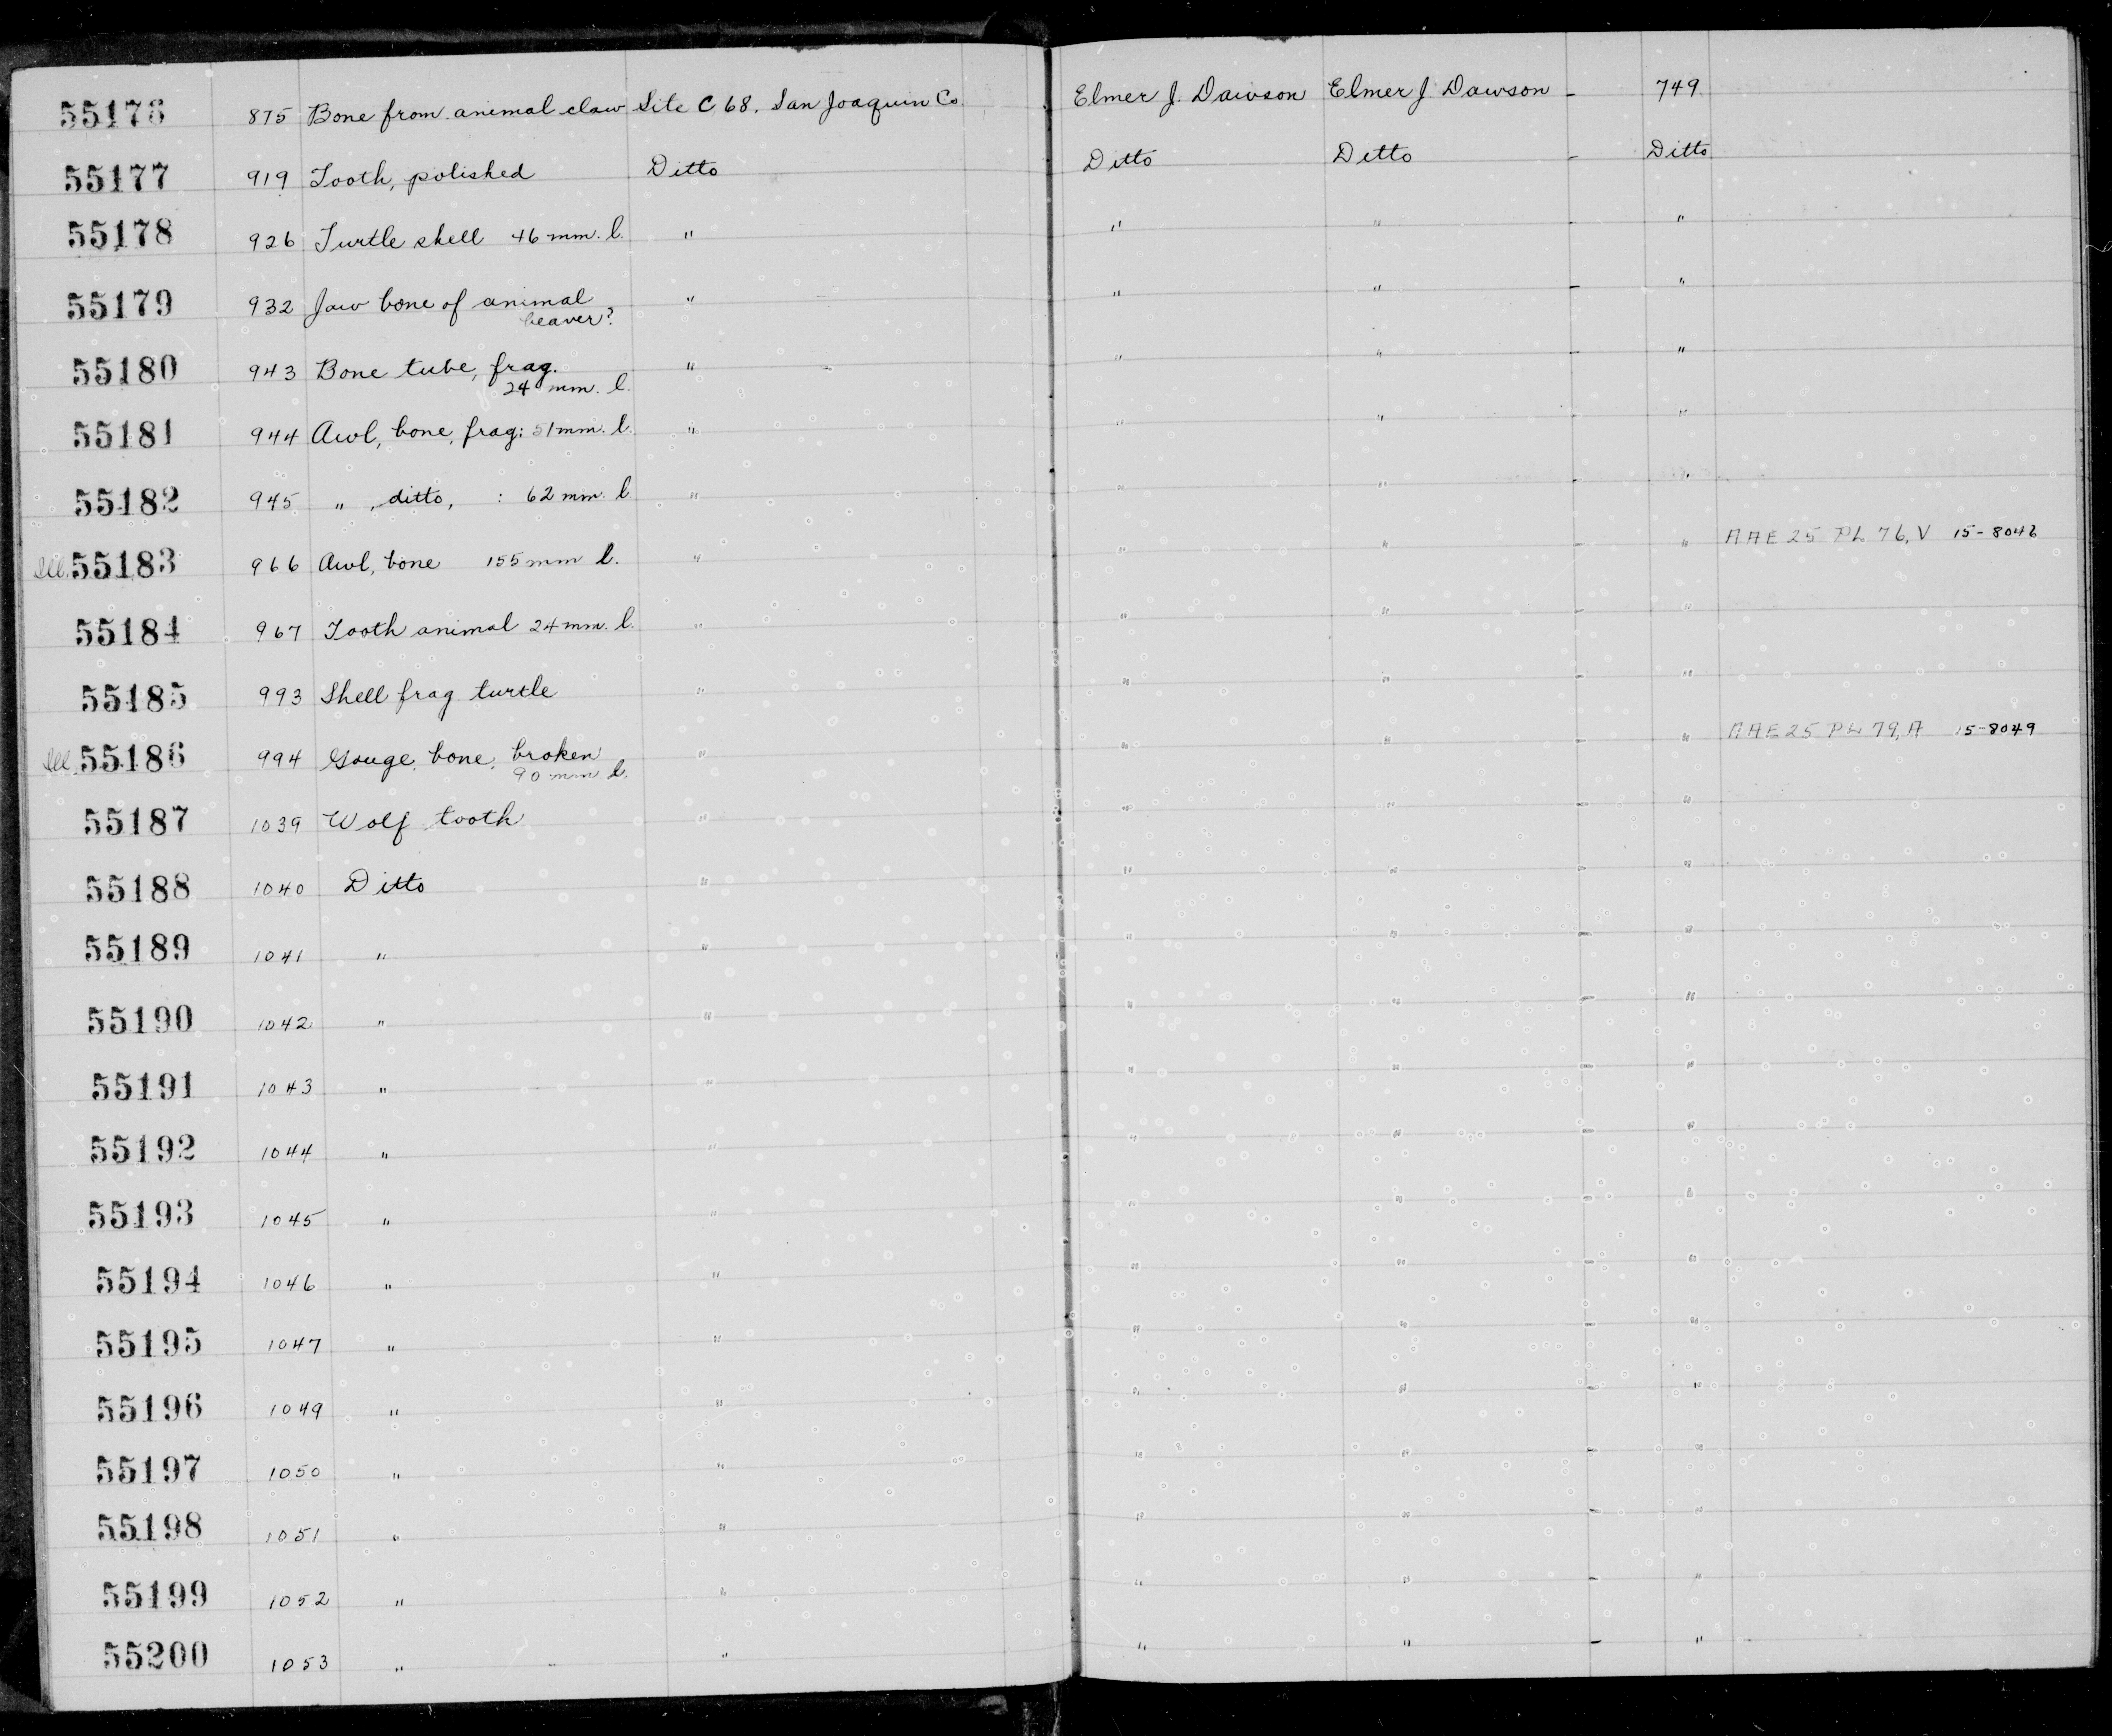 55176 875 Bone from animal claw Site C 68. San Joaquin Co. Elmer J. Dawson Elmer J. Dawson - 749
55177 919 Tooth, polished Ditto Ditto Ditto - Ditto
55178 926 Turtle shell 46 mm. l. " " " - "
55179 932 Jaw bone of animal " " " - "
beaver?
55180 943 Bone tube, frag. " " " - "
24 mm. l.
55181 944 Awl, bone, frag: 51 mm. l. " " " - "
55182 945 " , ditto, : 62 mm. l. " " " - "
Ill. 55183 966 Awl, bone 155 mm l. " " " - " AAE 25 PL 76, V 15-8046
55184 967 Tooth animal 24 mm. l. " " " - "
55185 993 Shell frag turtle " " " - "
Ill. 55186 994 Gouge, bone, broken " " " - " AAE 25 PL 79, A 15-8049
90 mm l.
55187 1039 Wolf tooth " " " - "
55188 1040 Ditto " " " - "
55189 1041 " " " " - "
55190 1042 " " " " - "
55191 1043 " " " " - "
55192 1044 " " " " - "
55193 1045 " " " " - "
55194 1046 " " " " - "
55195 1047 " " " " - "
55196 1049 " " " " - "
55197 1050 " " " " - "
55198 1051 " " " " - "
55199 1052 " " " " - "
55200 1053 " " " " - "